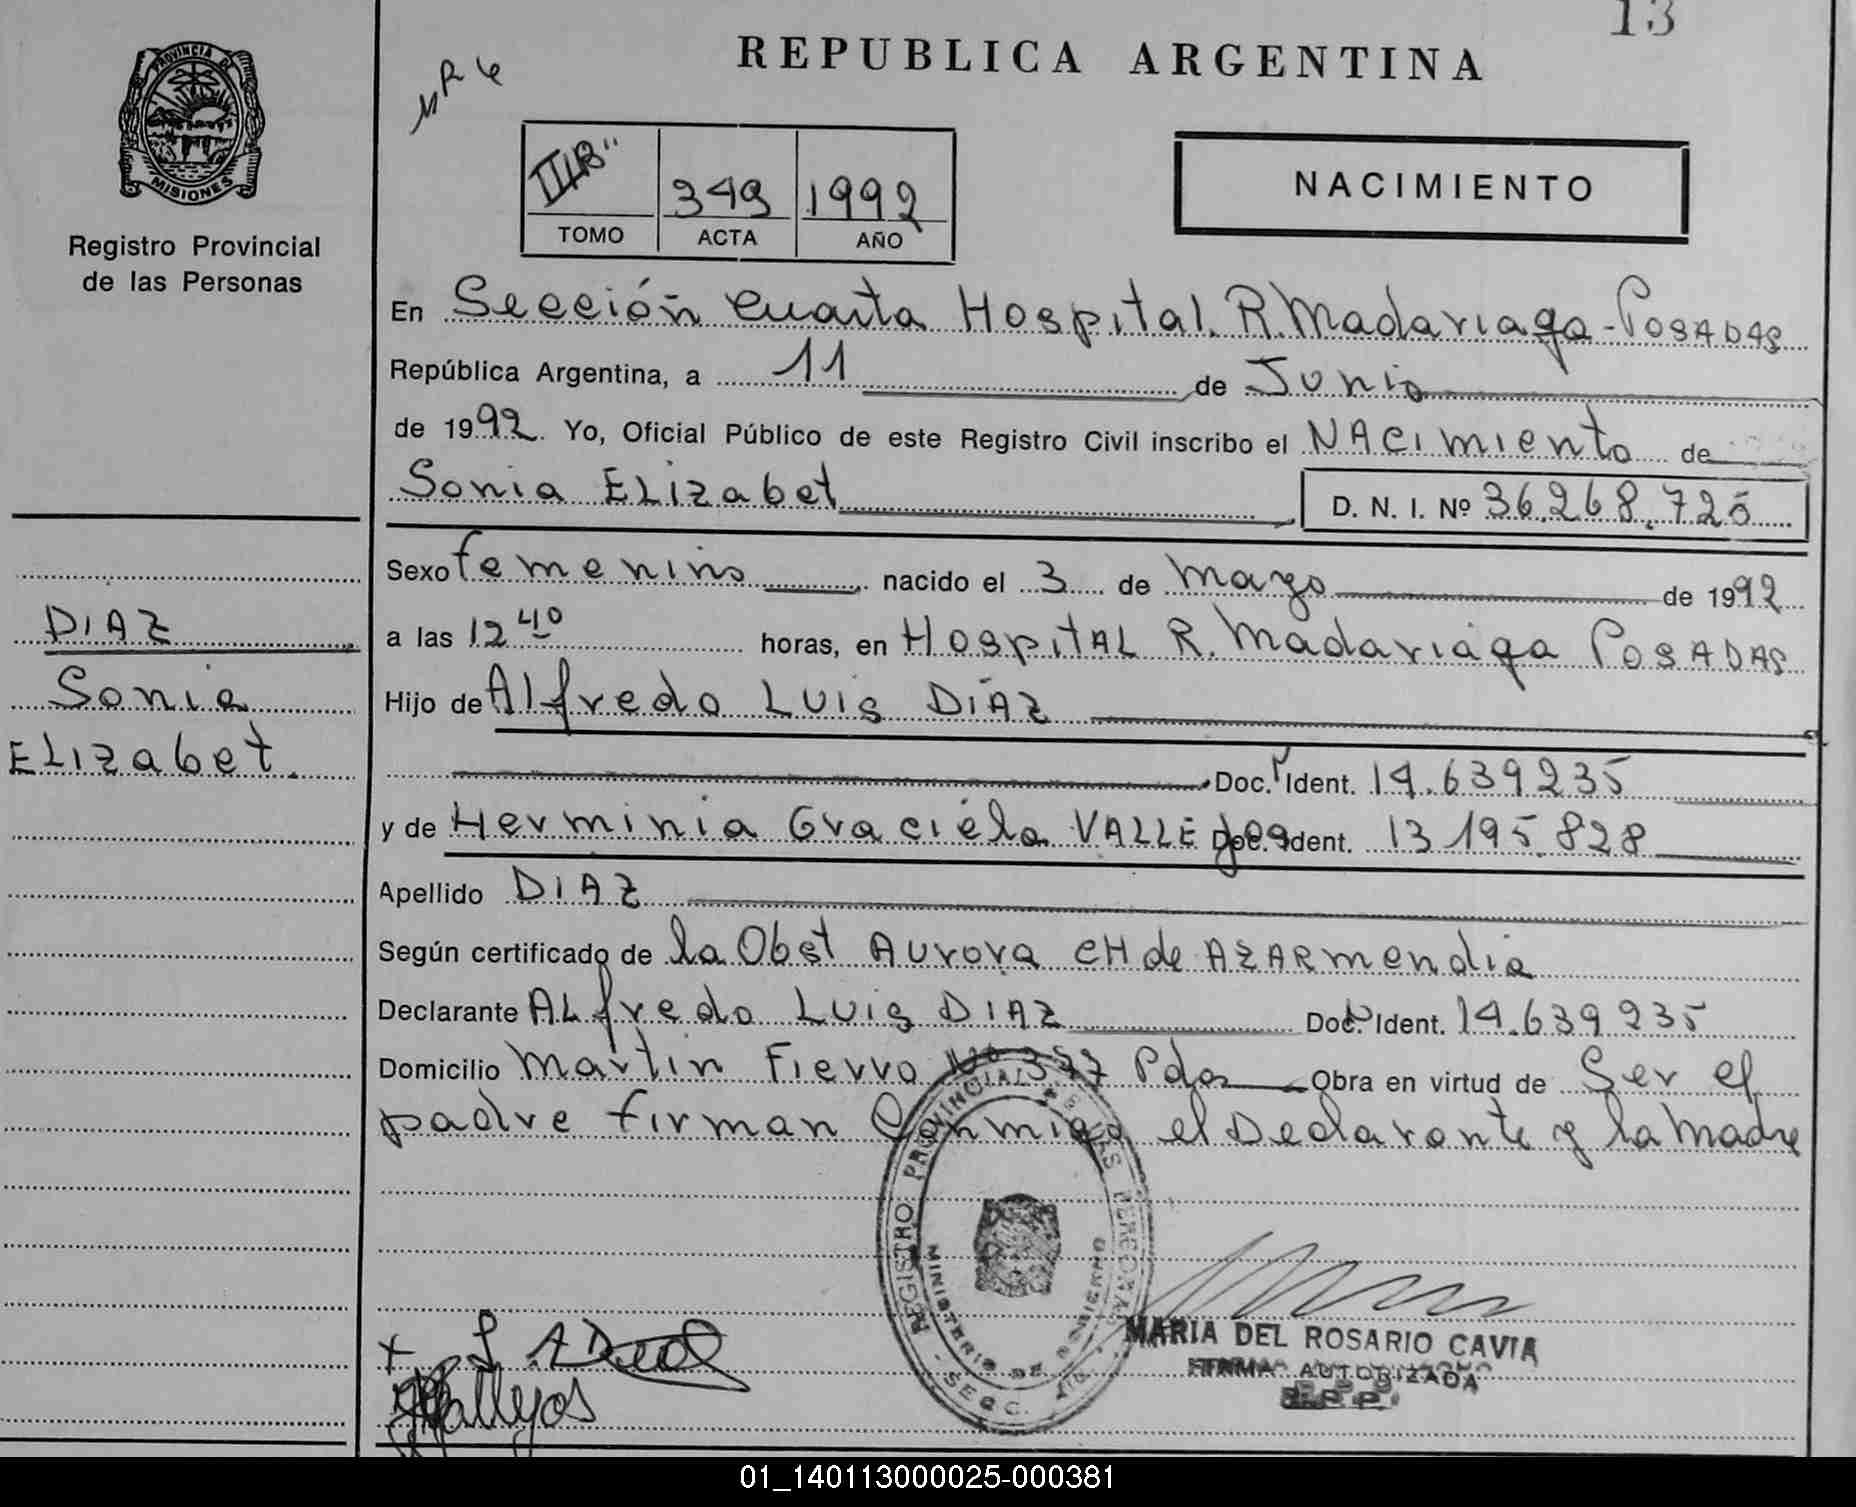 13
REPUBLICA ARGENTINA
PROVINCIA DE
MISIONES
Registro Provincial
de las Personas
349 1992
TOMO ACTA AÑO
NACIMIENTO
En Sección Cuarta Hospital. R. Madariaga - POSADAS
República Argentina, a 11 de Junio
de 1992. Yo, Oficial Público de este Registro Civil inscribo el NACimiento de
Sonia ELizabet D. N. I. Nº 36.268.725
Sexo femenino nacido el 3 de marzo de 1992
a las 12 40 horas, en HospitAL R. Madariaga POSADAS
Hijo de Alfredo LUis DiAZ
Doc. Ident. 14.639235
y de Herminia Graciela VALLEjos Doc. Ident. 13 195.828
Apellido DIAZ
Según certificado de la Obst Aurora CH de AZARmendia
Declarante ALfredo LUis DIAZ Doc. Ident. 14.639 235
Domicilio Martin Fierro Nº 377 Pdas Obra en virtud de Ser el
padre firman Conmigo el Declarante y la madre
DIAZ
Sonia
ELizabet.
REGISTRO PROVINCIAL DE LAS PERSONAS
MINISTERIO DE GOBIERNO
SECC.
MARIA DEL ROSARIO CAVIA
FIRMA AUTORIZADA
R.P.P.
Vallejos
01_140113000025-000381